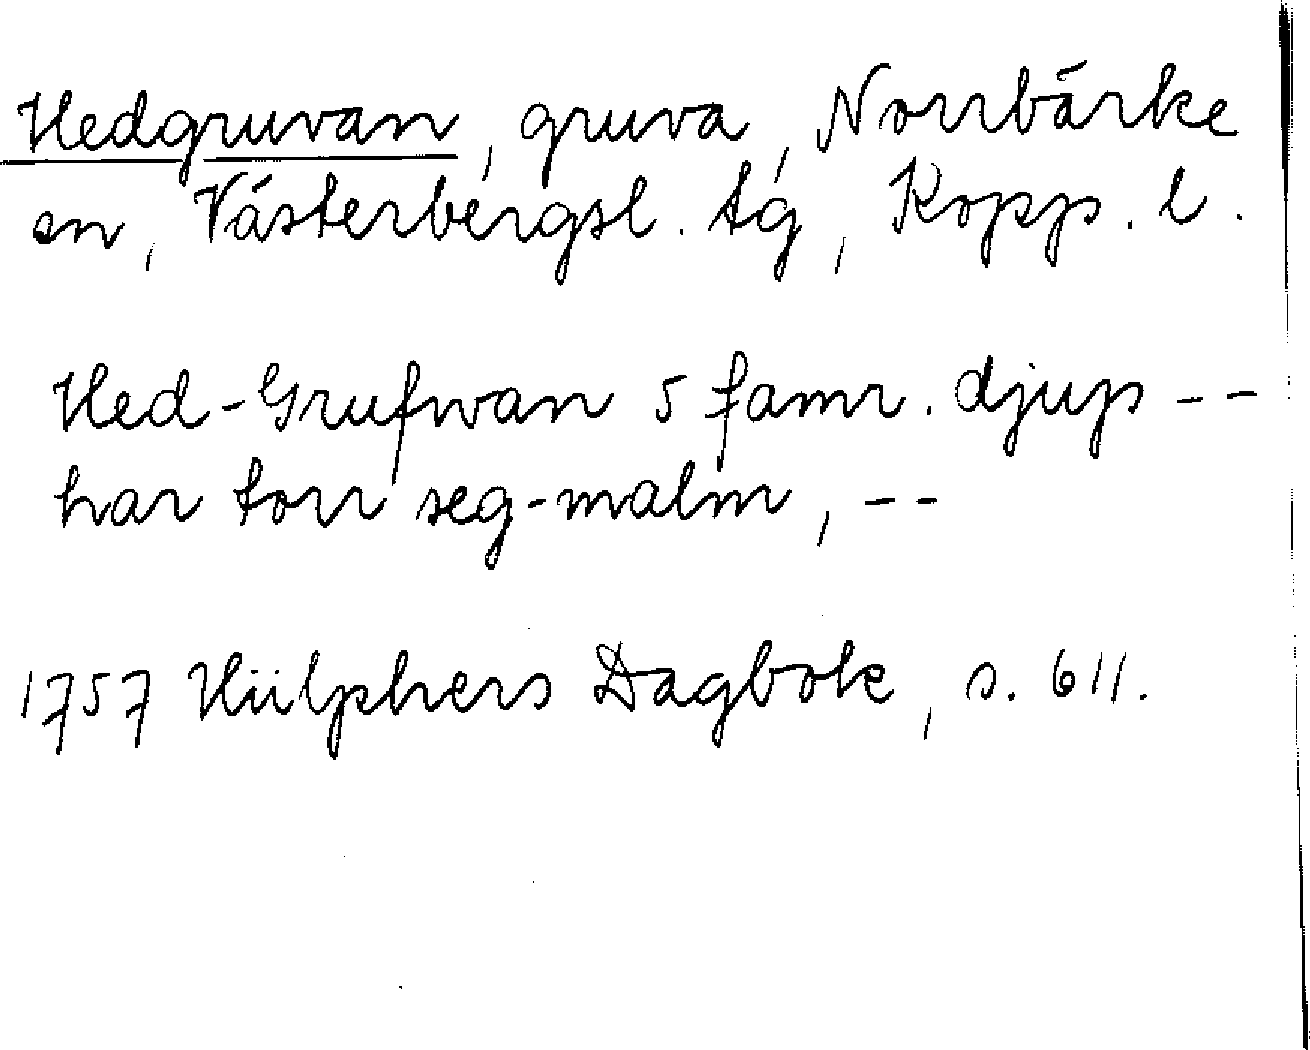 Hedgruvan, gruva, Norrbärke
sn, Västerbergsl. tg, Kopp. l.
Hed-Grufwan 5 famr. djup --
har torr seg-malm, --
1757 Hülphers Dagbok, s. 611.